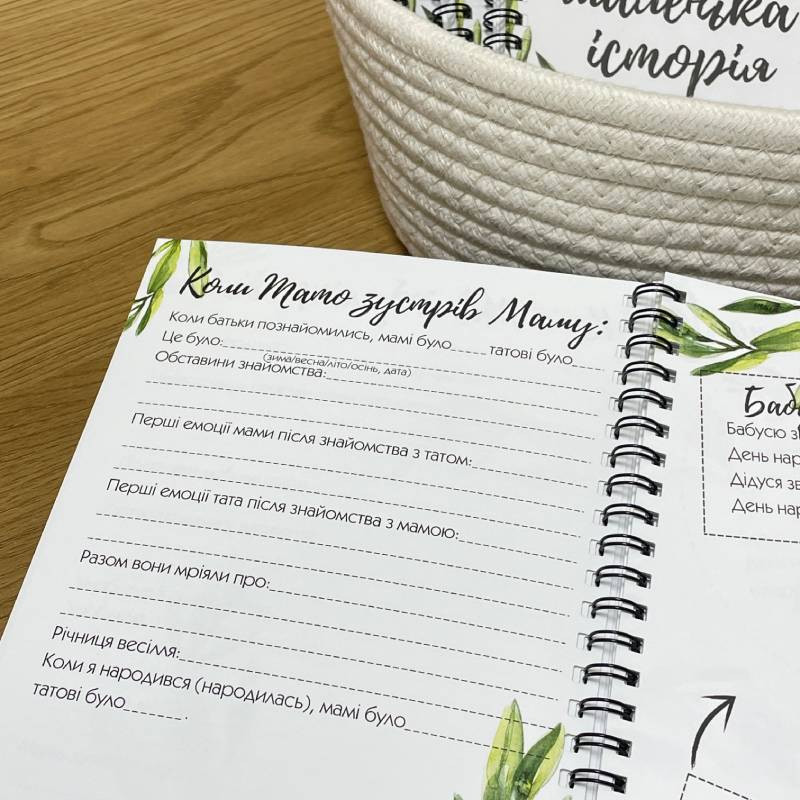 маленька
історія
Коли Тато зустрів Маму:
Коли батьки познайомились, мамі було_____ татові було_____
Це було:_____
(зима/весна/літо/осінь, дата)
Обставини знайомства:_____
Перші емоції мами після знайомства з татом:_____
Перші емоції тата після знайомства з мамою:_____
Разом вони мріяли про:_____
Річниця весілля:_____
Коли я народився (народилась), мамі було_____
татові було_____.
Бабусю
День
Дідуся
День